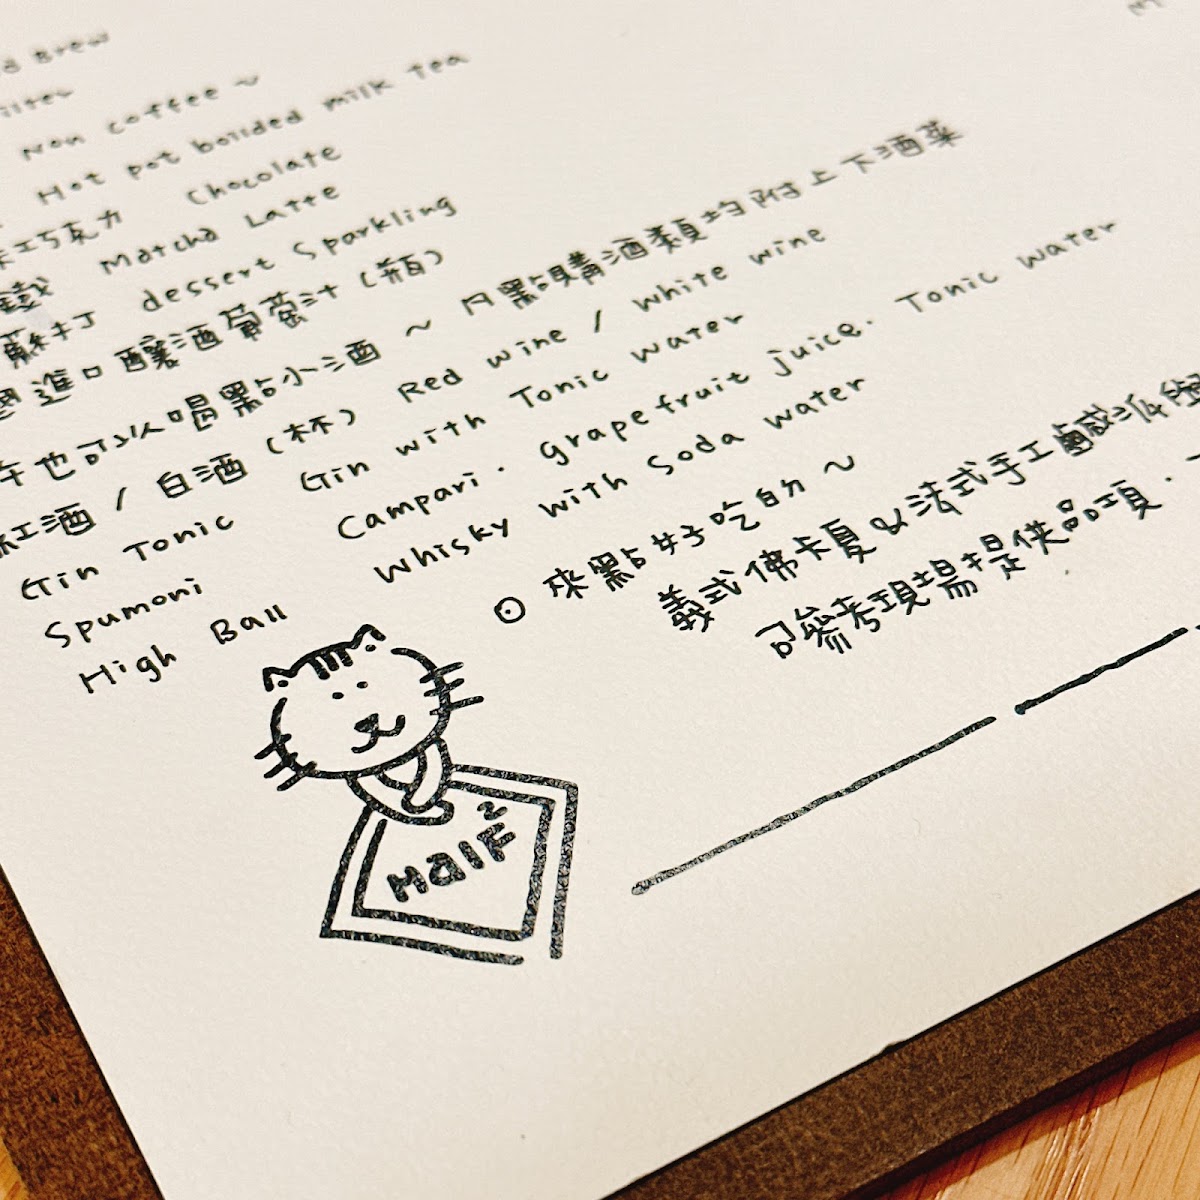 Brew
Non coffee ~
Hot pot boilded milk tea
巧克力 Chocolate
Matcha Latte
蘇打 dessert Sparkling
進口釀酒葡萄汁(瓶)
也可以喝點小酒 ~ 凡點購酒類均附上下酒菜
紅酒 / 白酒 (杯) Red wine / white wine
Gin Tonic Gin with Tonic water
Spumoni Campari. grapefruit juice. Tonic water
High Ball Whisky with Soda water
⊙ 來點好吃的 ~
義式佛卡夏 & 法式手工鹹派
可參考現場提供品項.
Half²